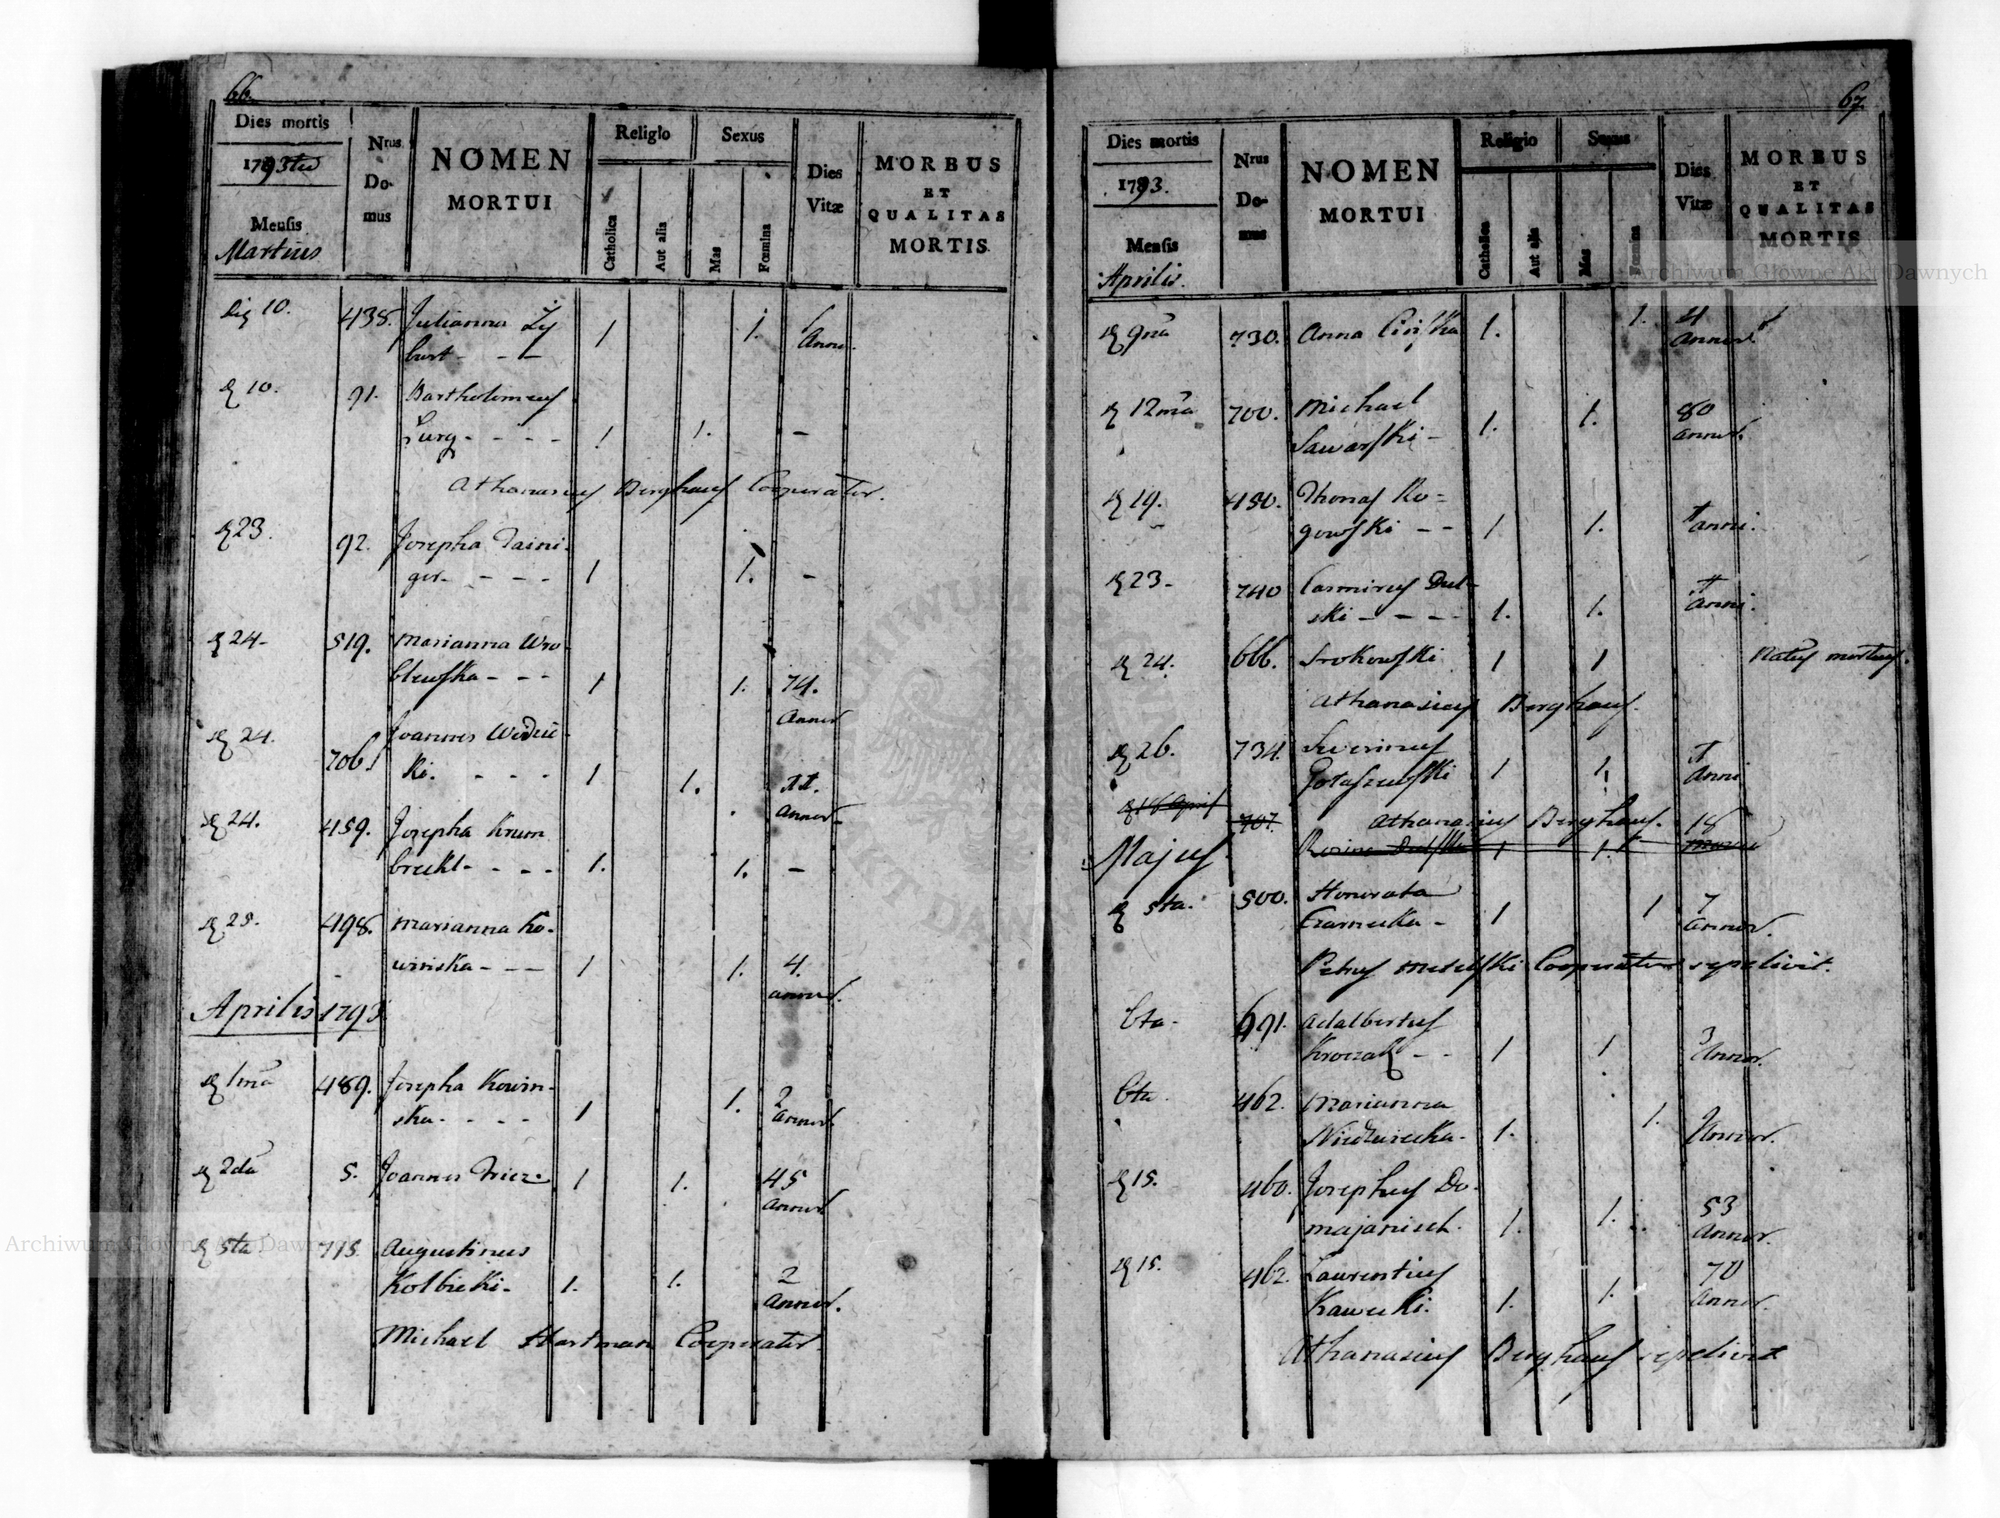 66.
Dies mortis
1793tio
Mensis
Martius
Nrus
Do-
mus
NOMEN
MORTUI
Religio
Catholica
Aut alia
Sexus
Mas
Fœmina
Dies
Vitæ
MORBUS
ET
QUALITAS
MORTIS
10. 438. Julianna Zy
burt - - - 1 1. Anni.
10. 91. Bartholomeus
- - - - 1 1. -
Athanasius Berghauf Cooperator.
23. 92. Josepha
ger - - - - 1 1. -
24- 519. Marianna Wro-
blewska - - - 1 1. 74.
Annor
24. 706. Joannes
ki. - - - 1 1.
annor-
24. 459. Josepha Krum
brecht - - - - 1. 1. -
25. 498. Marianna Ko-
winska - - - 1 1. 4.
annor.
Aprilis 1793.
1ma 489. Josepha Kowin-
ska - - - - 1 1. 2
annor.
2da 5. Joannes 1 1. 45
annor
5ta 715. Augustinus
Kolbieki. 1. 1. 2
annor.
Michael Hartman Cooperator.
67.
Dies mortis
1793.
Mensis
Aprilis.
Nrus
Do-
mus
NOMEN
MORTUI
Religio
Catholica
Aut alia
Sexus
Mas
Fœmina
Dies
Vitæ
MORBUS
ET
QUALITAS
MORTIS
9na 730. Anna 1. 1. 4
annor.
12ma 700. Michael
Sawarski - 1. 1. 80
annor.
19. 450. Thomas Ro=
gowski - - 1 1. 1 anni.
23- 740 Casimirus Dul-
ski - - - - 1. 1. 1 anni.
24. 666. Srokowski 1 1 Natus mortuus.
Athanasius Berghauf.
26. 734. Severinus
Gotaszewski 1 1. 1
anni
18 April 707. Athanasius Berghauf. 18
Majus
5ta. 500. Honorata
Czarnecka - 1 1 7
annor.
Petrus Cooperator sepelivit.
6ta - 691. Adalbertus
- - 1 1 3
Annor.
6ta. 462. Marianna
Niedzwiecka. 1. 1. Annor.
15. 460. Josephus Do-
majanisch. 1. 1. 53
Annor.
15. 462. Laurentius
Kawecki. 1. 1. 70
Annor.
Athanasius Berghauf sepelivit
Archiwum Główne Akt Dawnych
Archiwum Główne Akt Dawnych